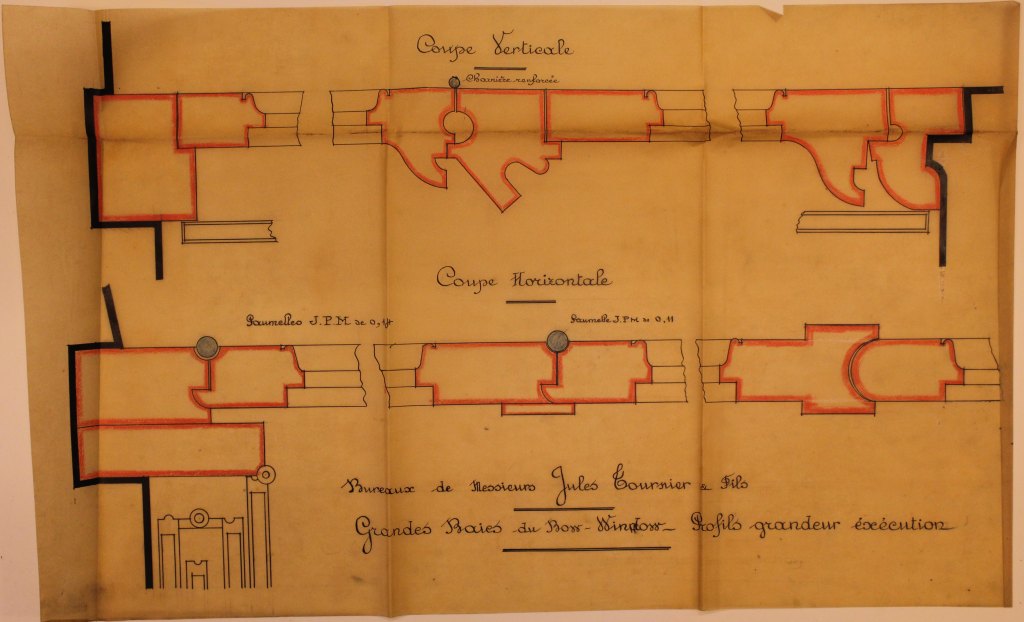 Coupe Verticale
Charnière renforcée
Coupe Horizontale
Paumelles J.P.M de 0,14
Paumelle J.P.M de 0,11
Bureaux de Messieurs Jules Tournier & Fils
Grandes Baies du Bow-Window_ Profils grandeur éxécution